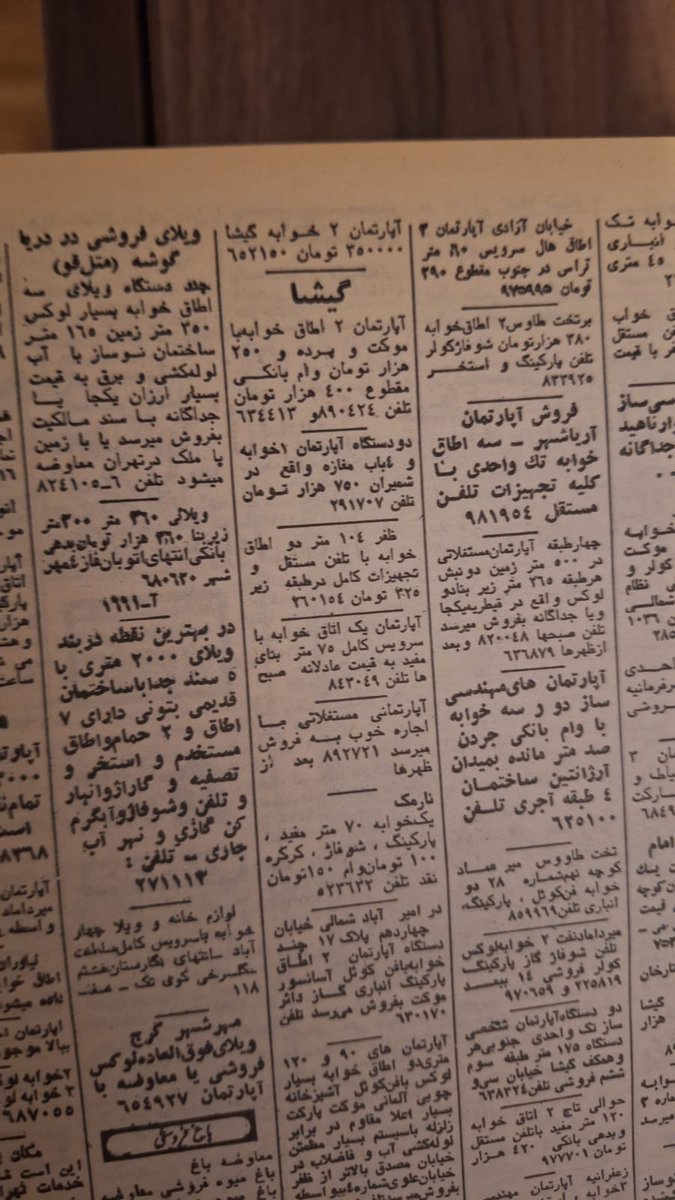 خیابان آزادی آپارتمان ۳
اطاق هال سرویس ۶۰ متر
تراس در جنوب مقطوع ۲۹۰
تومان ۹۷۵۹۹۵
برتخت طاوس ۲ اطاق‌خوابه
۳۸۰ هزارتومان شوفاژکولر
تلفن پارکینگ و استخر
۸۳۳۹۲۵
فروش آپارتمان
آریاشهر ــ سه اطاق
خوابه تك واحدی با
کلیه تجهیزات تلفن
مستقل ۹۸۱۹۵۴
چهارطبقه آپارتمان‌مستغلاتی
در ۵۰۰ متر زمین دونبش
هرطبقه ۲۶۵ متر زیر بنادو
لوکس واقع در قیطریه‌یکجا
ویا جداگانه بفروش میرسد
تلفن صبحها ۸۲۰۰۴۸ وبعد
ازظهرها ۶۳۶۸۷۹
آپارتمان های‌مهندسی
ساز دو و سه خوابه
با وام بانکی جردن
صد متر مانده بمیدان
آرژانتین ساختمان
۴ طبقه آجری تلفن
۶۲۵۱۰۰
تخت طاووس میر عماد
کوچه نهم‌شماره ۲۸ دو
خوابه فن‌کوئل ، پارکینگ،
انباری تلفن ۸۵۹۹۶۹
میردامادنفت ۲ خوابه‌لوکس
تلفن شوفاژ گاز پارکینگ
کولر فروشی ۱۴ ببعد
۲۲۵۸۱۹ و ۹۷۰۶۵۹
دو دستگاه‌آپارتمان شخصی
ساز تک واحدی جنوبی‌هر
دستگاه ۱۷۵ متر طبقه سوم
وهمکف گیشا خیابان سی‌و
ششم فروشی تلفن ۶۳۸۳۲۴
حوالی تاج ۲ اتاق خوابه
۱۲۰ متر مفید باتلفن مستقل
وبدهی بانکی ۴۲۰ هزار
تومان ۹۷۷۷۰۱
زعفرانیه آپارتمان مهندس
آپارتمان ۲ خوابه گیشا
۳۵۰۰۰۰ تومان ۶۵۲۱۵۰
گیشا
آپارتمان ۲ اطاق خوابه‌با
موکت و پرده و ۲۵۰
هزار تومان وام بانکی
مقطوع ۴۰۰ هزار تومان
تلفن ۸۹۰۴۲۴و ۶۳۴۴۱۳
دودستگاه آپارتمان ۱خوابه
و ۴باب مغازه واقع در
شمیران ۷۵۰ هزار تومان
تلفن ۲۹۱۷۰۷
ظفر ۱۰۴ متر دو اطاق
خوابه با تلفن مستقل و
تجهیزات کامل درطبقه زیر
۳۲۵ تومان ۲۶۰۱۵۴
آپارتمان یک اتاق خوابه با
سرویس کامل ۷۵ متر بنای
مفید به قیمت عادلانه صبح
ها تلفن ۸۴۳۰۴۹
آپارتمانی مستغلاتی با
اجاره خوب به فروش
میرسد ۸۹۲۷۲۱ بعد از
ظهرها
نارمک
یک‌خوابه ۷۰ متر مفید ،
پارکینگ ، شوفاژ ، کرکره
۱۰۰ تومان‌وام ۱۵۰تومان
نقد تلفن ۵۲۳۶۳۲
در امیر آباد شمالی خیابان
چهاردهم پلاک ۱۷ چند
دستگاه آپارتمان ۲ اطاق
خوابه‌بافن کوئل آسانسور
پارکینگ انباری گاز دائر
موکت بفروش می‌رسد تلفن
۶۳۰۱۷۰
آپارتمان های ۹۰ و ۱۲۰
متری‌دو اطاق خوابه بسیار
لوکس بافن‌کوئل آشپزخانه
چوبی آلمانی موکت پارکت
بسیار اعلا مقاوم در برابر
زلزله باسیستم بسیار مطمئن
لوله‌کشی آب و فاضلاب در
خیابان مصدق بالاتر از ظفر
خیابان‌علوی‌شماره۴بیواسطه
ویلای فروشی در دریا
گوشه (متل‌قو)
چند دستگاه ویلای سه
اطاق خوابه بسیار لوکس
۲۵۰ متر زمین ۱۶۵ متر
ساختمان نوساز با آب
لوله‌کشی و برق به قیمت
بسیار ارزان یکجا یا
جداگانه با سند مالکیت
بفروش میرسد یا با زمین
یا ملک درتهران معاوضه
میشود تلفن ۶ــ۸۲۴۱۰۵
ویلائی ۳۶۰ متر ۳۰۰متر
زیربنا ۳۶۰ هزار تومان‌بدهی
بانکی‌انتهای‌اتوبان‌فاز۴مهر
شهر ۶۸۰۶۳۰
آــ۱۹۹۱
در بهترین نقطه دربند
ویلای ۲۰۰۰ متری با
۵ سند جداباساختمان
قدیمی بتونی دارای ۷
اطاق و ۲ حمام‌واطاق
مستخدم و استخر و
تصفیه و گاراژوانبار
و تلفن وشوفاژوآبگرم
کن گازی و نهر آب
جاری ــ تلفن :
۲۷۱۱۱۳
لوازم خانه و ویلا چهار
خوابه باسرویس کامل‌سلطنت
آباد ــ‌انتهای نگارستان‌هشتم
۱۱۸
مهرشهر کرج
ویلای‌فوق‌العاده‌لوکس
فروشی یا معاوضه با
آپارتمان ۶۵۴۹۲۷
باغ فروشی
معاوضه باغ